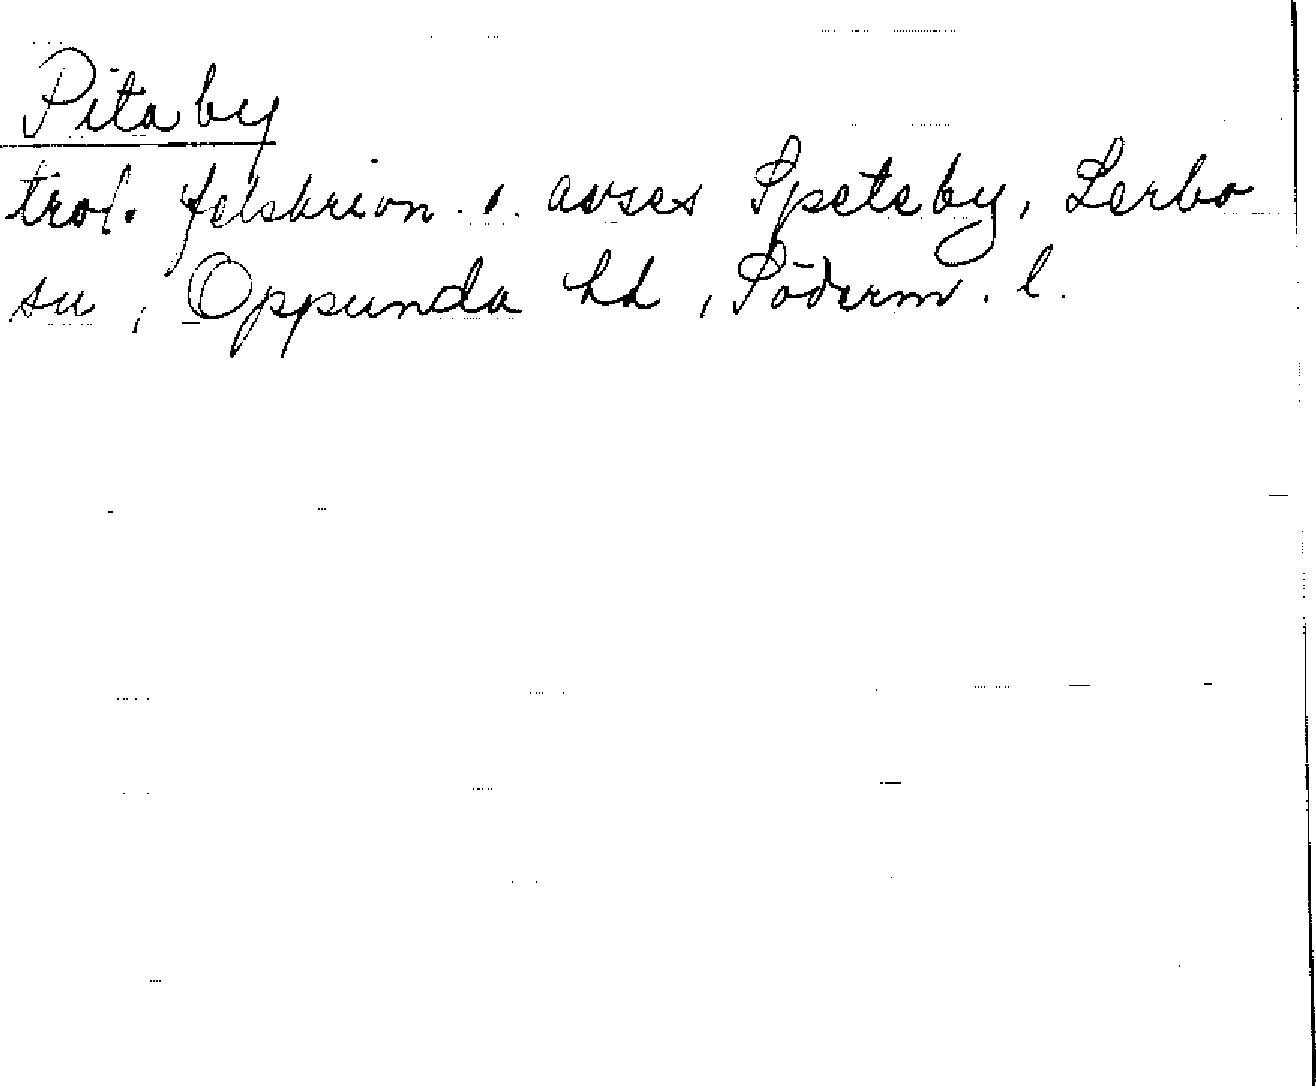 Pitaby
trol. felskrivn. o. avses Spetsby, Lerbo
sn, Oppunda hd, Söderm. l.